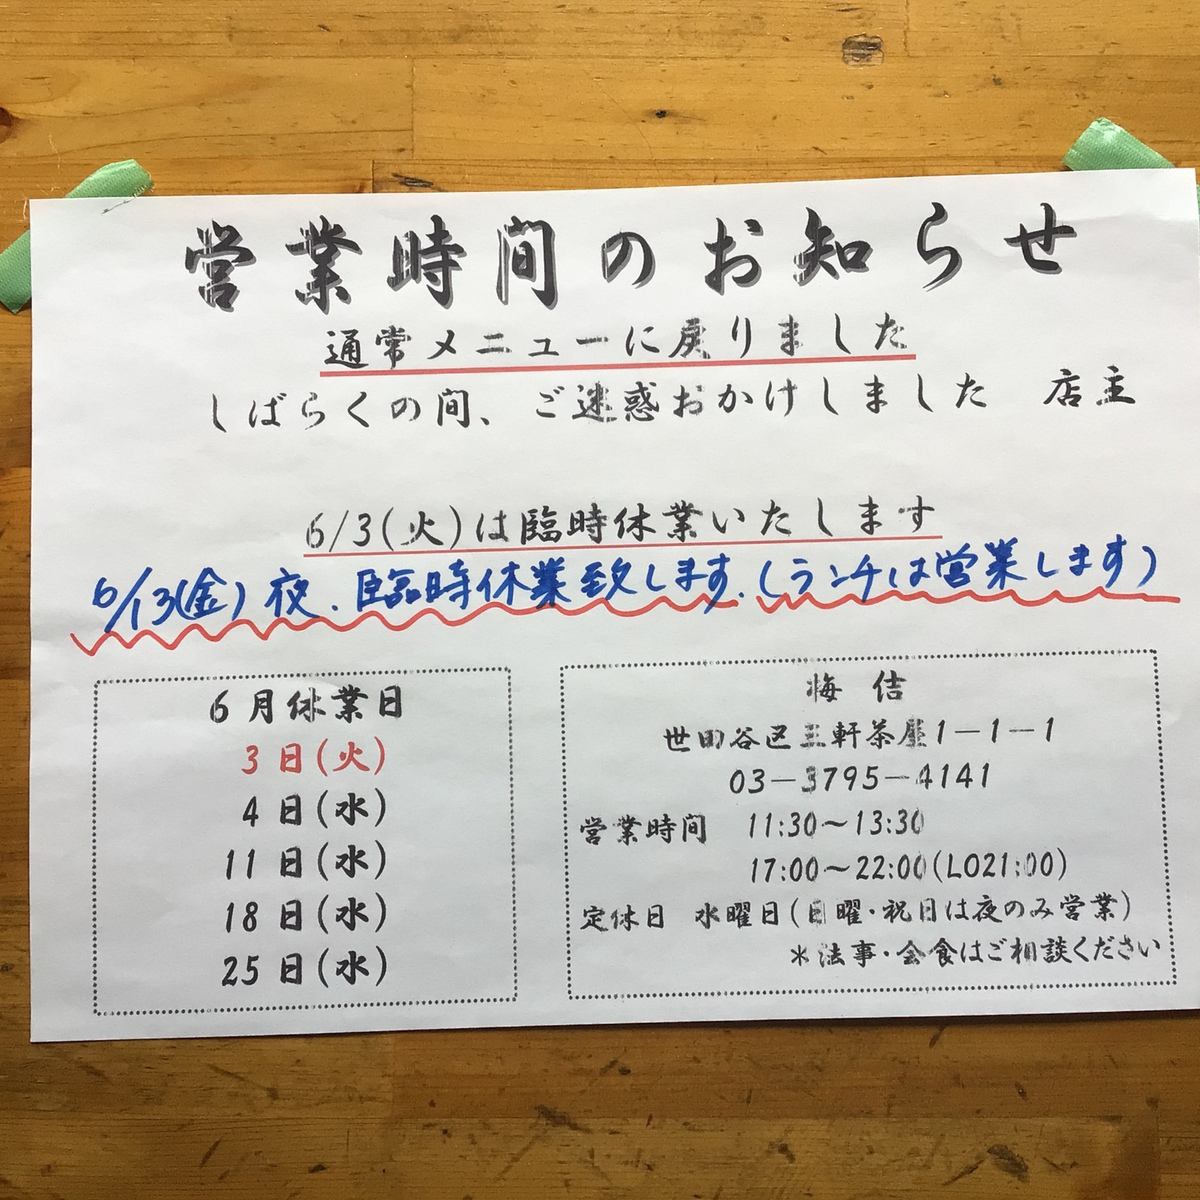 営業時間のお知らせ
通常メニューに戻りました
しばらくの間、ご迷惑おかけしました　店主
6/3(火)は臨時休業いたします
6/13(金)夜、臨時休業致します。(ランチは営業します)
6月休業日
3日(火)
4日(水)
11日(水)
18日(水)
25日(水)
梅佶
世田谷区三軒茶屋1－1－1
03－3795－4141
営業時間　11:30～13:30
17:00～22:00(LO21:00)
定休日　水曜日(日曜・祝日は夜のみ営業)
＊法事・会食はご相談ください